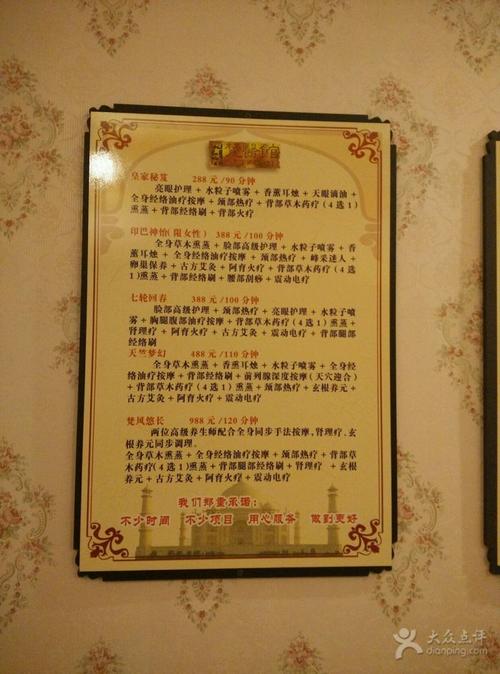 皇家秘笈 288元/90分钟
亮眼护理 + 水粒子喷雾 + 香薰耳烛 + 天眼滴油 +
全身经络油疗按摩 + 颈部热疗 + 背部草木药疗 (4选1)
熏蒸 + 背部经络刷 + 背部火疗
印巴神怡(限女性) 388元/100分钟
全身草木熏蒸 + 脸部高级护理 + 水粒子喷雾 + 香
薰耳烛 + 全身经络油疗按摩 + 颈部热疗 + 峰采迷人 +
卵巢保养 + 古方艾灸 + 阿育火疗 + 背部草木药疗(4选1)
熏蒸 + 背部经络刷 + 腰部刮痧 + 震动电疗
七轮回春 388元/100分钟
脸部高级护理 + 颈部热疗 + 亮眼护理 + 水粒子喷
雾 + 胸腿腹部油疗按摩 + 背部草木药疗(4选1)熏蒸 +
肾理疗 + 阿育火疗 + 古方艾灸 + 震动电疗 + 背部腿部
经络刷
天竺梦幻 488元/110分钟
全身草木熏蒸 + 香薰耳烛 + 水粒子喷雾 + 全身经
络油疗按摩 + 背部经络刷 + 前列腺深度按摩(天穴迎合)
+ 背部草木药疗(4选1)熏蒸 + 颈部热疗 + 玄根养元 +
古方艾灸 + 阿育火疗 + 震动电疗
梵风悠长 988元/120分钟
两位高级养生师配合全身同步手法按摩,肾理疗、玄
根养元同步调理。
全身草木熏蒸 + 全身经络油疗按摩 + 颈部热疗 + 背部草木
药疗(4选1)熏蒸 + 背部腿部经络刷 + 肾理疗 + 玄根养
元 + 古方艾灸 + 阿育火疗 + 震动电疗
我们郑重承诺:
不少时间 不少项目 用心服务 做到更好
大众点评
dianping.com